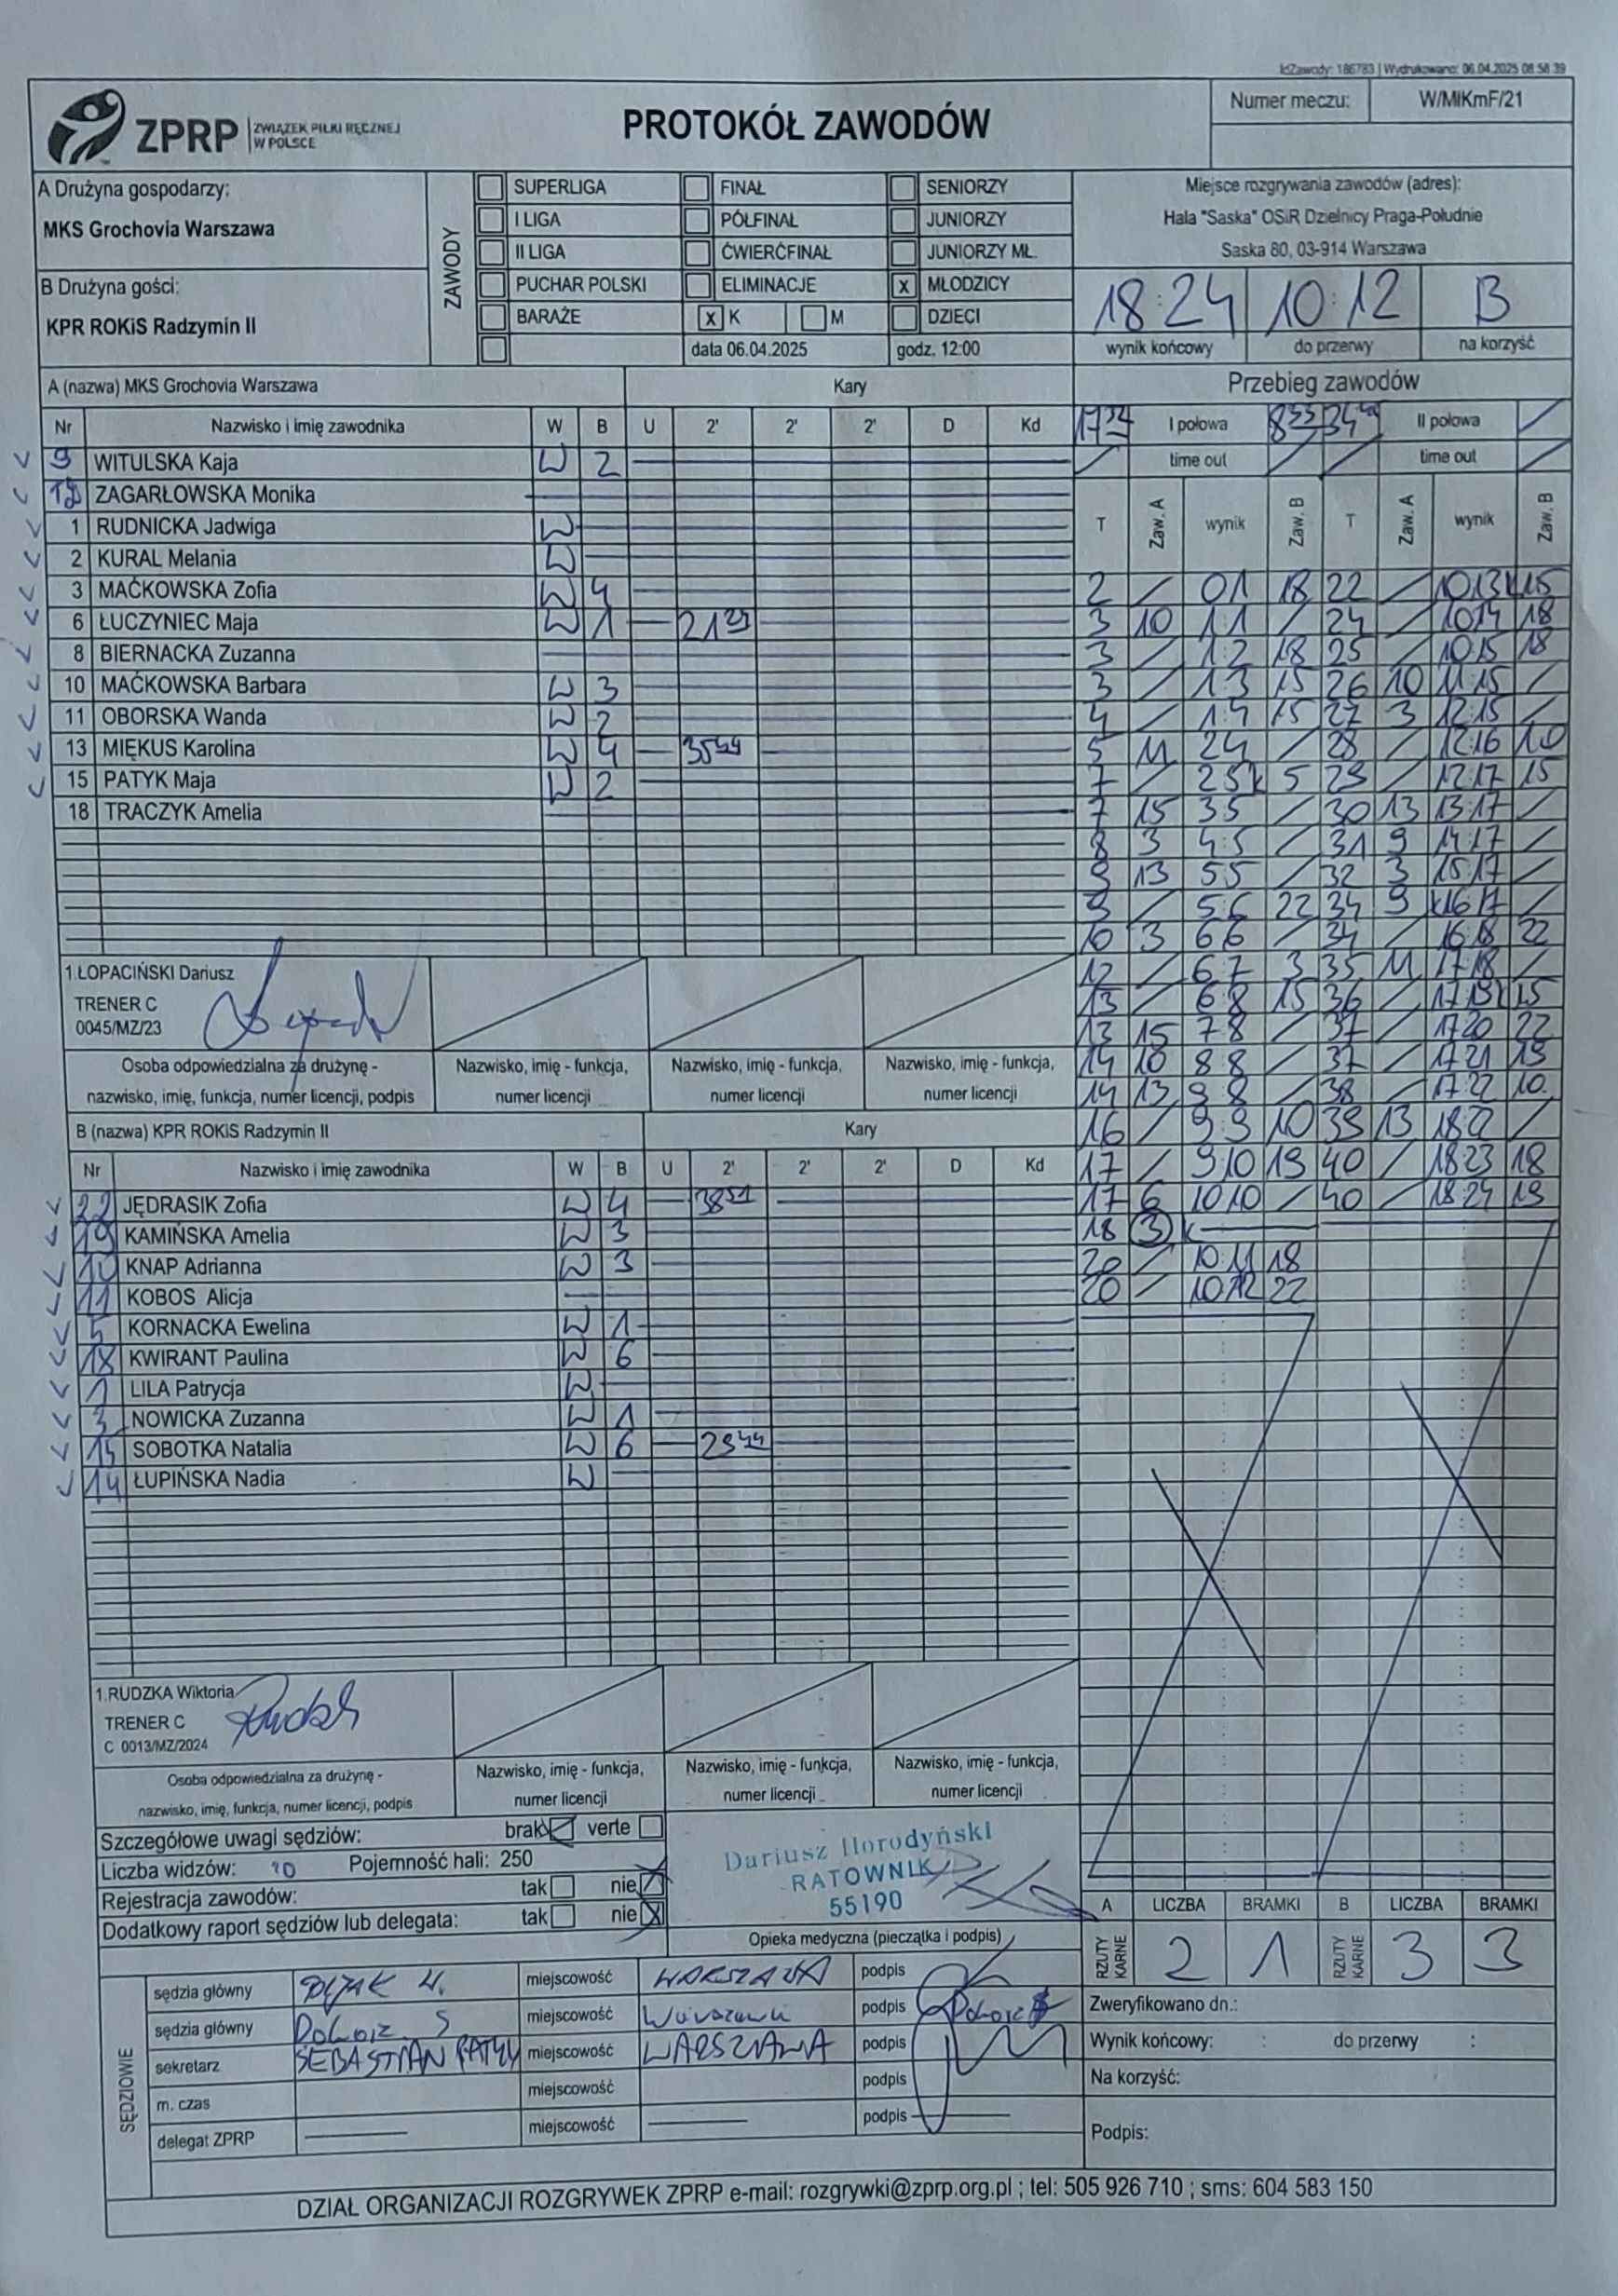 IdZawody: 186783 | Wydrukowano: 06.04.2025 08:58:39
ZPRP ZWIĄZEK PIŁKI RĘCZNEJ W POLSCE
PROTOKÓŁ ZAWODÓW
Numer meczu: W/MlKmF/21
A Drużyna gospodarzy:
MKS Grochovia Warszawa
B Drużyna gości:
KPR ROKiS Radzymin II
ZAWODY
SUPERLIGA FINAŁ SENIORZY
I LIGA PÓŁFINAŁ JUNIORZY
II LIGA ĆWIERĆFINAŁ JUNIORZY MŁ.
PUCHAR POLSKI ELIMINACJE x MŁODZICY
BARAŻE x K M DZIECI
data 06.04.2025 godz. 12:00
Miejsce rozgrywania zawodów (adres):
Hala "Saska" OSiR Dzielnicy Praga-Południe
Saska 80, 03-914 Warszawa
18:24 10:12 B
wynik końcowy do przerwy na korzyść
A (nazwa) MKS Grochovia Warszawa Kary
Nr Nazwisko i imię zawodnika W B U 2' 2' 2' D Kd
9 WITULSKA Kaja W 2
ZAGARŁOWSKA Monika
1 RUDNICKA Jadwiga W
2 KURAL Melania W
3 MAĆKOWSKA Zofia W 4
6 ŁUCZYNIEC Maja W 1 21
8 BIERNACKA Zuzanna
10 MAĆKOWSKA Barbara W 3
11 OBORSKA Wanda W 2
13 MIĘKUS Karolina W 4 35 44
15 PATYK Maja W 2
18 TRACZYK Amelia
1.ŁOPACIŃSKI Dariusz
TRENER C
0045/MZ/23
Osoba odpowiedzialna za drużynę -
nazwisko, imię, funkcja, numer licencji, podpis
Nazwisko, imię - funkcja,
numer licencji
Nazwisko, imię - funkcja,
numer licencji
Nazwisko, imię - funkcja,
numer licencji
B (nazwa) KPR ROKiS Radzymin II Kary
Nr Nazwisko i imię zawodnika W B U 2' 2' 2' D Kd
22 JĘDRASIK Zofia W 4 38 51
19 KAMIŃSKA Amelia W 3
10 KNAP Adrianna W 3
11 KOBOS Alicja
5 KORNACKA Ewelina W 1
18 KWIRANT Paulina W 6
1 LILA Patrycja W
3 NOWICKA Zuzanna W 1
15 SOBOTKA Natalia W 6 23 44
14 ŁUPIŃSKA Nadia W
1.RUDZKA Wiktoria
TRENER C
C 0013/MZ/2024
Osoba odpowiedzialna za drużynę -
nazwisko, imię, funkcja, numer licencji, podpis
Nazwisko, imię - funkcja,
numer licencji
Nazwisko, imię - funkcja,
numer licencji
Nazwisko, imię - funkcja,
numer licencji
Przebieg zawodów
I połowa II połowa
time out time out
T Zaw. A wynik Zaw. B T Zaw. A wynik Zaw. B
2 / 0:1 18 22 / 10:13 k15
3 10 1:1 / 24 / 10:14 18
3 / 1:2 18 25 / 10:15 18
3 / 1:3 15 26 10 11:15 /
4 / 1:4 15 27 3 12:15 /
5 11 2:4 / 28 / 12:16 10
7 / 2:5 k 5 29 / 12:17 15
7 15 3:5 / 30 13 13:17 /
8 3 4:5 / 31 9 14:17 /
9 13 5:5 / 32 3 15:17 /
9 / 5:6 22 34 9 k16:17 /
10 3 6:6 / 34 / 16:18 22
12 / 6:7 3 35 11 17:18 /
13 / 6:8 15 36 / 17:19 k15
13 15 7:8 / 37 / 17:20 22
14 10 8:8 / 37 / 17:21 15
14 13 9:8 / 38 / 17:22 10
16 / 9:9 10 39 13 18:22 /
17 / 9:10 19 40 / 18:23 18
17 6 10:10 / 40 / 18:24 19
18 3 k
20 / 10:11 18
20 / 10:12 22
Szczegółowe uwagi sędziów: brak verte
Liczba widzów: Pojemność hali: 250
Rejestracja zawodów: tak nie
Dodatkowy raport sędziów lub delegata: tak nie
Dariusz Horodyński
RATOWNIK
55190
Opieka medyczna (pieczątka i podpis)
A LICZBA BRAMKI B LICZBA BRAMKI
RZUTY KARNE 2 1 RZUTY KARNE 3 3
SĘDZIOWIE
sędzia główny miejscowość WARSZAWA podpis
sędzia główny miejscowość Warszawa podpis
sekretarz SEBASTIAN PATYK miejscowość WARSZAWA podpis
m. czas miejscowość podpis
delegat ZPRP miejscowość podpis
Zweryfikowano dn.:
Wynik końcowy: : do przerwy :
Na korzyść:
Podpis:
DZIAŁ ORGANIZACJI ROZGRYWEK ZPRP e-mail: rozgrywki@zprp.org.pl ; tel: 505 926 710 ; sms: 604 583 150